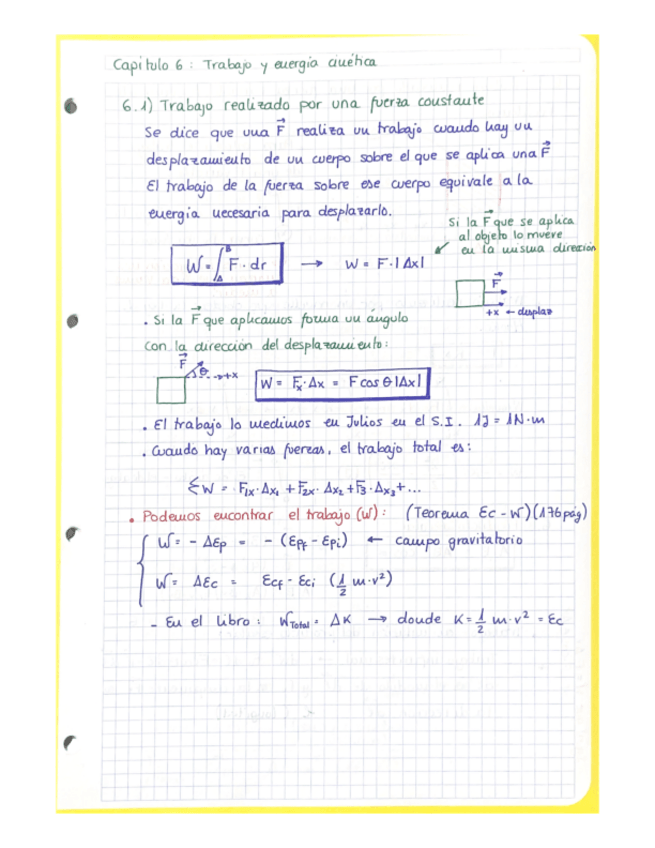 Capitulo 6 : Trabajo y energía cinética
6.1) Trabajo realizado por una fuerza constante
Se dice que una F⃗ realiza un trabajo cuando hay un
desplazamiento de un cuerpo sobre el que se aplica una F⃗
El trabajo de la fuerza sobre ese cuerpo equivale a la
energía necesaria para desplazarlo.
Si la F⃗ que se aplica
al objeto lo mueve
en la misma dirección
W = ∫_A^B F · dr → W = F · |Δx|
F⃗
+x ← desplaz
. Si la F⃗ que aplicamos forma un ángulo
con la dirección del desplazamiento:
F⃗ θ +x
W = Fx · Δx = F cos θ |Δx|
. El trabajo lo medimos en Julios en el S.I. 1J = 1N·m
. Cuando hay varias fuerzas, el trabajo total es:
ΣW = F1x · Δx1 + F2x · Δx2 + F3 · Δx3 + ...
• Podemos encontrar el trabajo (W) : (Teorema Ec - W) (176 pág)
{ W = - ΔEp = - (Epf - Epi) ← campo gravitatorio
W = ΔEc = Ecf - Eci (1/2 m·v²)
- En el libro : WTotal = ΔK → donde K = 1/2 m·v² = Ec